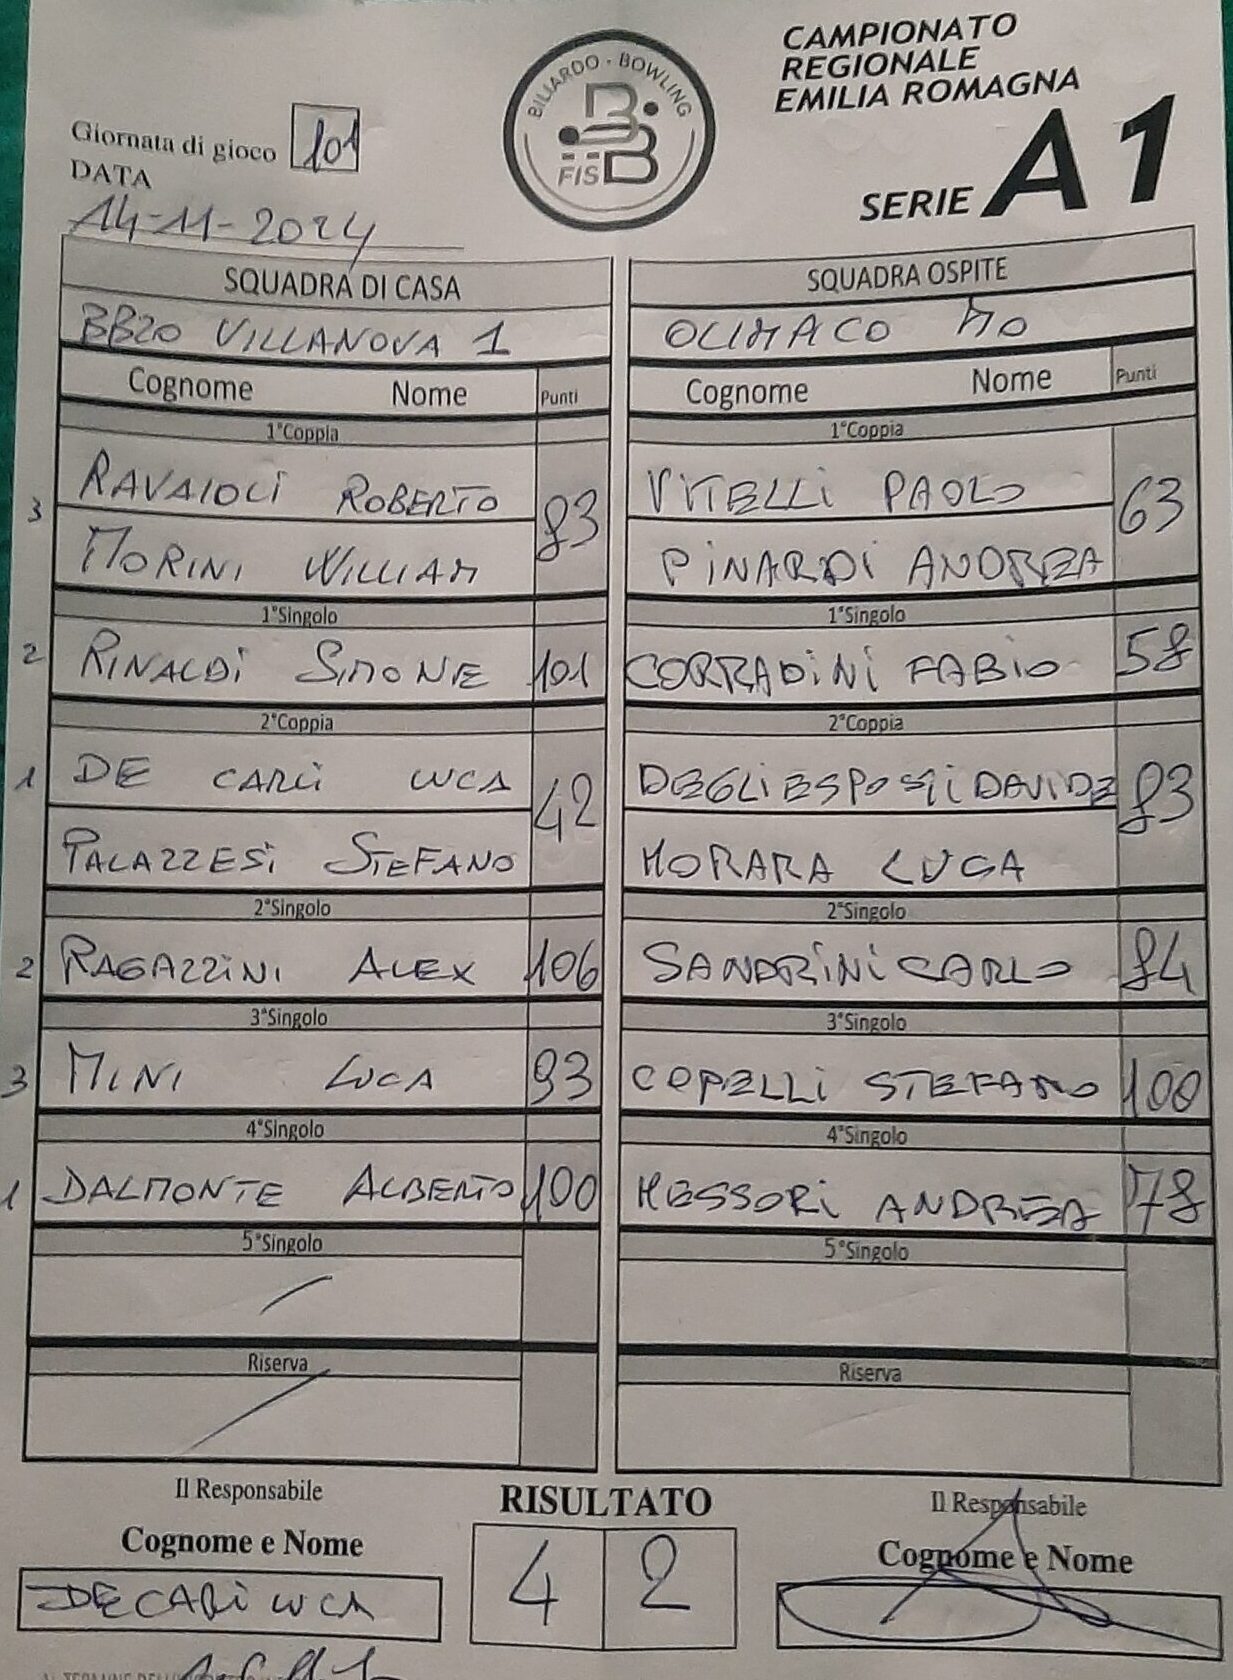 CAMPIONATO
REGIONALE
EMILIA ROMAGNA
SERIE A1
BILIARDO - BOWLING
FISBB
Giornata di gioco 101
DATA
14-11-2024
SQUADRA DI CASA SQUADRA OSPITE
BB20 VILLANOVA 1 OLIMACO MO
Cognome Nome Punti Cognome Nome Punti
1°Coppia 1°Coppia
3 RAVAIOLI ROBERTO 83 VITELLI PAOLO 63
MORINI WILLIAM PINARDI ANDREA
1°Singolo 1°Singolo
2 RINALDI SIMONE 101 CORRADINI FABIO 58
2°Coppia 2°Coppia
1 DE CARLI LUCA 42 DEGLIESPOSTI DAVIDE 83
PALAZZESI STEFANO MORARA LUCA
2°Singolo 2°Singolo
2 RAGAZZINI ALEX 106 SANDRINI CARLO 84
3°Singolo 3°Singolo
3 MINI LUCA 93 COPELLI STEFANO 100
4°Singolo 4°Singolo
1 DALMONTE ALBERTO 100 MESSORI ANDREA 78
5°Singolo 5°Singolo
Riserva Riserva
Il Responsabile RISULTATO Il Responsabile
Cognome e Nome 4 2 Cognome e Nome
DE CARLI LUCA